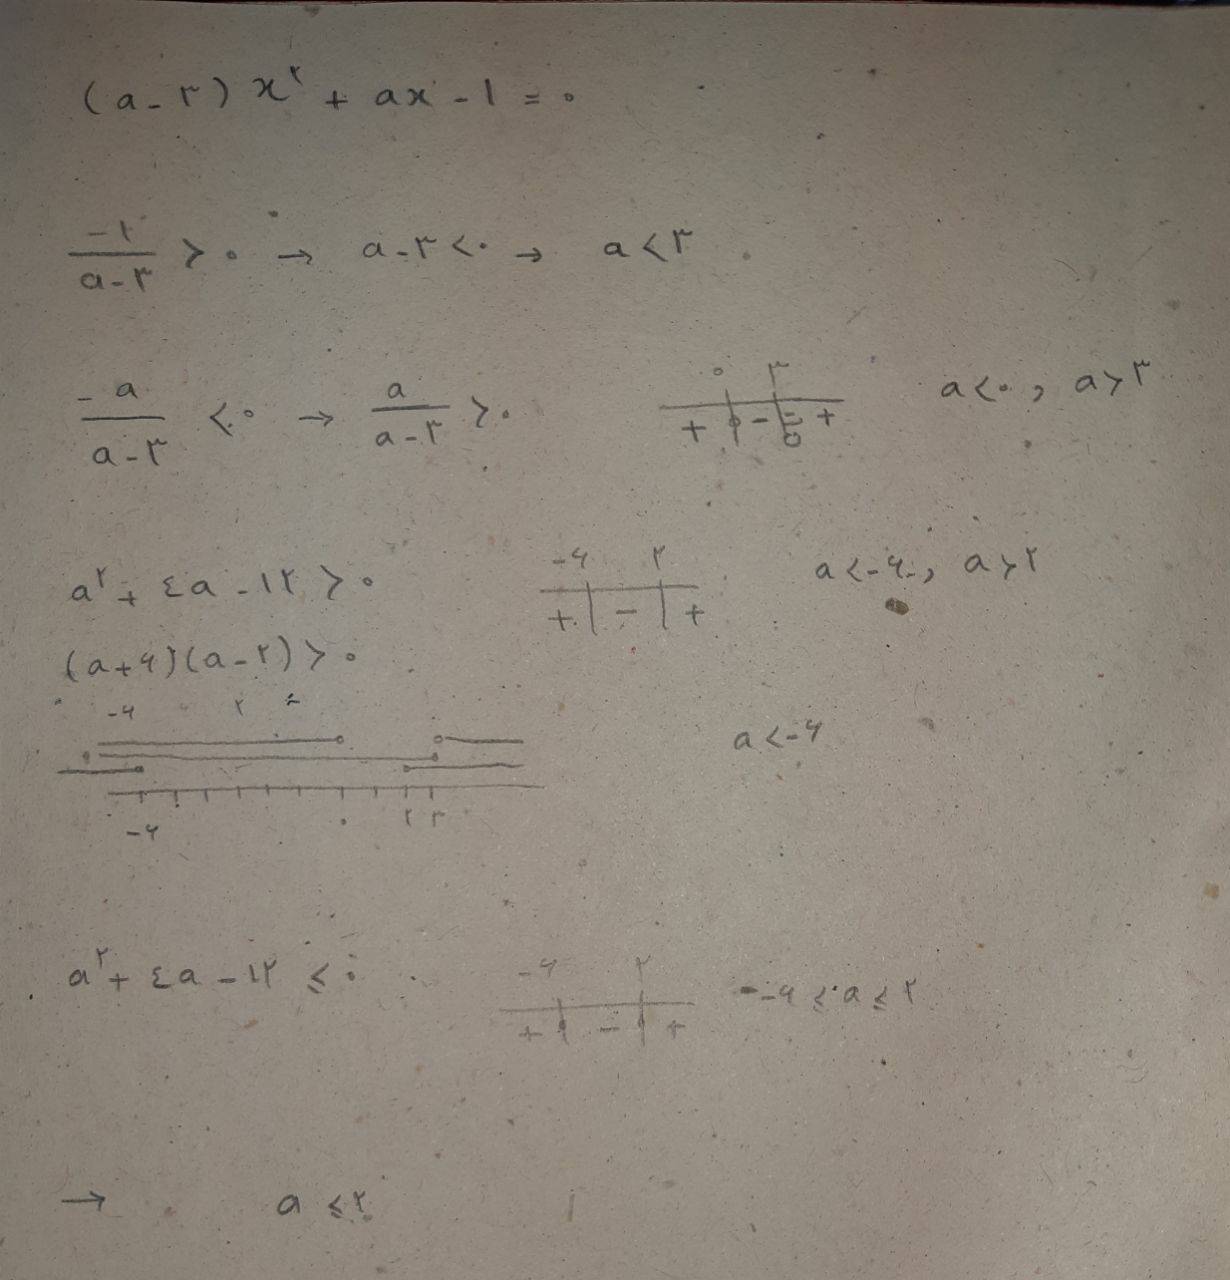 (a-۳) x^۲ + ax - ۱ = ۰
-۱/(a-۳) > ۰ → a-۳ < ۰ → a < ۳
-a/(a-۳) < ۰ → a/(a-۳) > ۰ ۰ ۳ + - + a < ۰ , a > ۳
a^۲ + ۴a - ۱۲ > ۰ -۶ ۲ + - + a < -۶ , a > ۲
(a+۶)(a-۲) > ۰
-۶ ۲
a < -۶
-۶ ۰ ۲ ۳
a^۲ + ۴a - ۱۲ ≤ ۰ -۶ ۲ + - + -۶ ≤ a ≤ ۲
→ a ≤ ۲